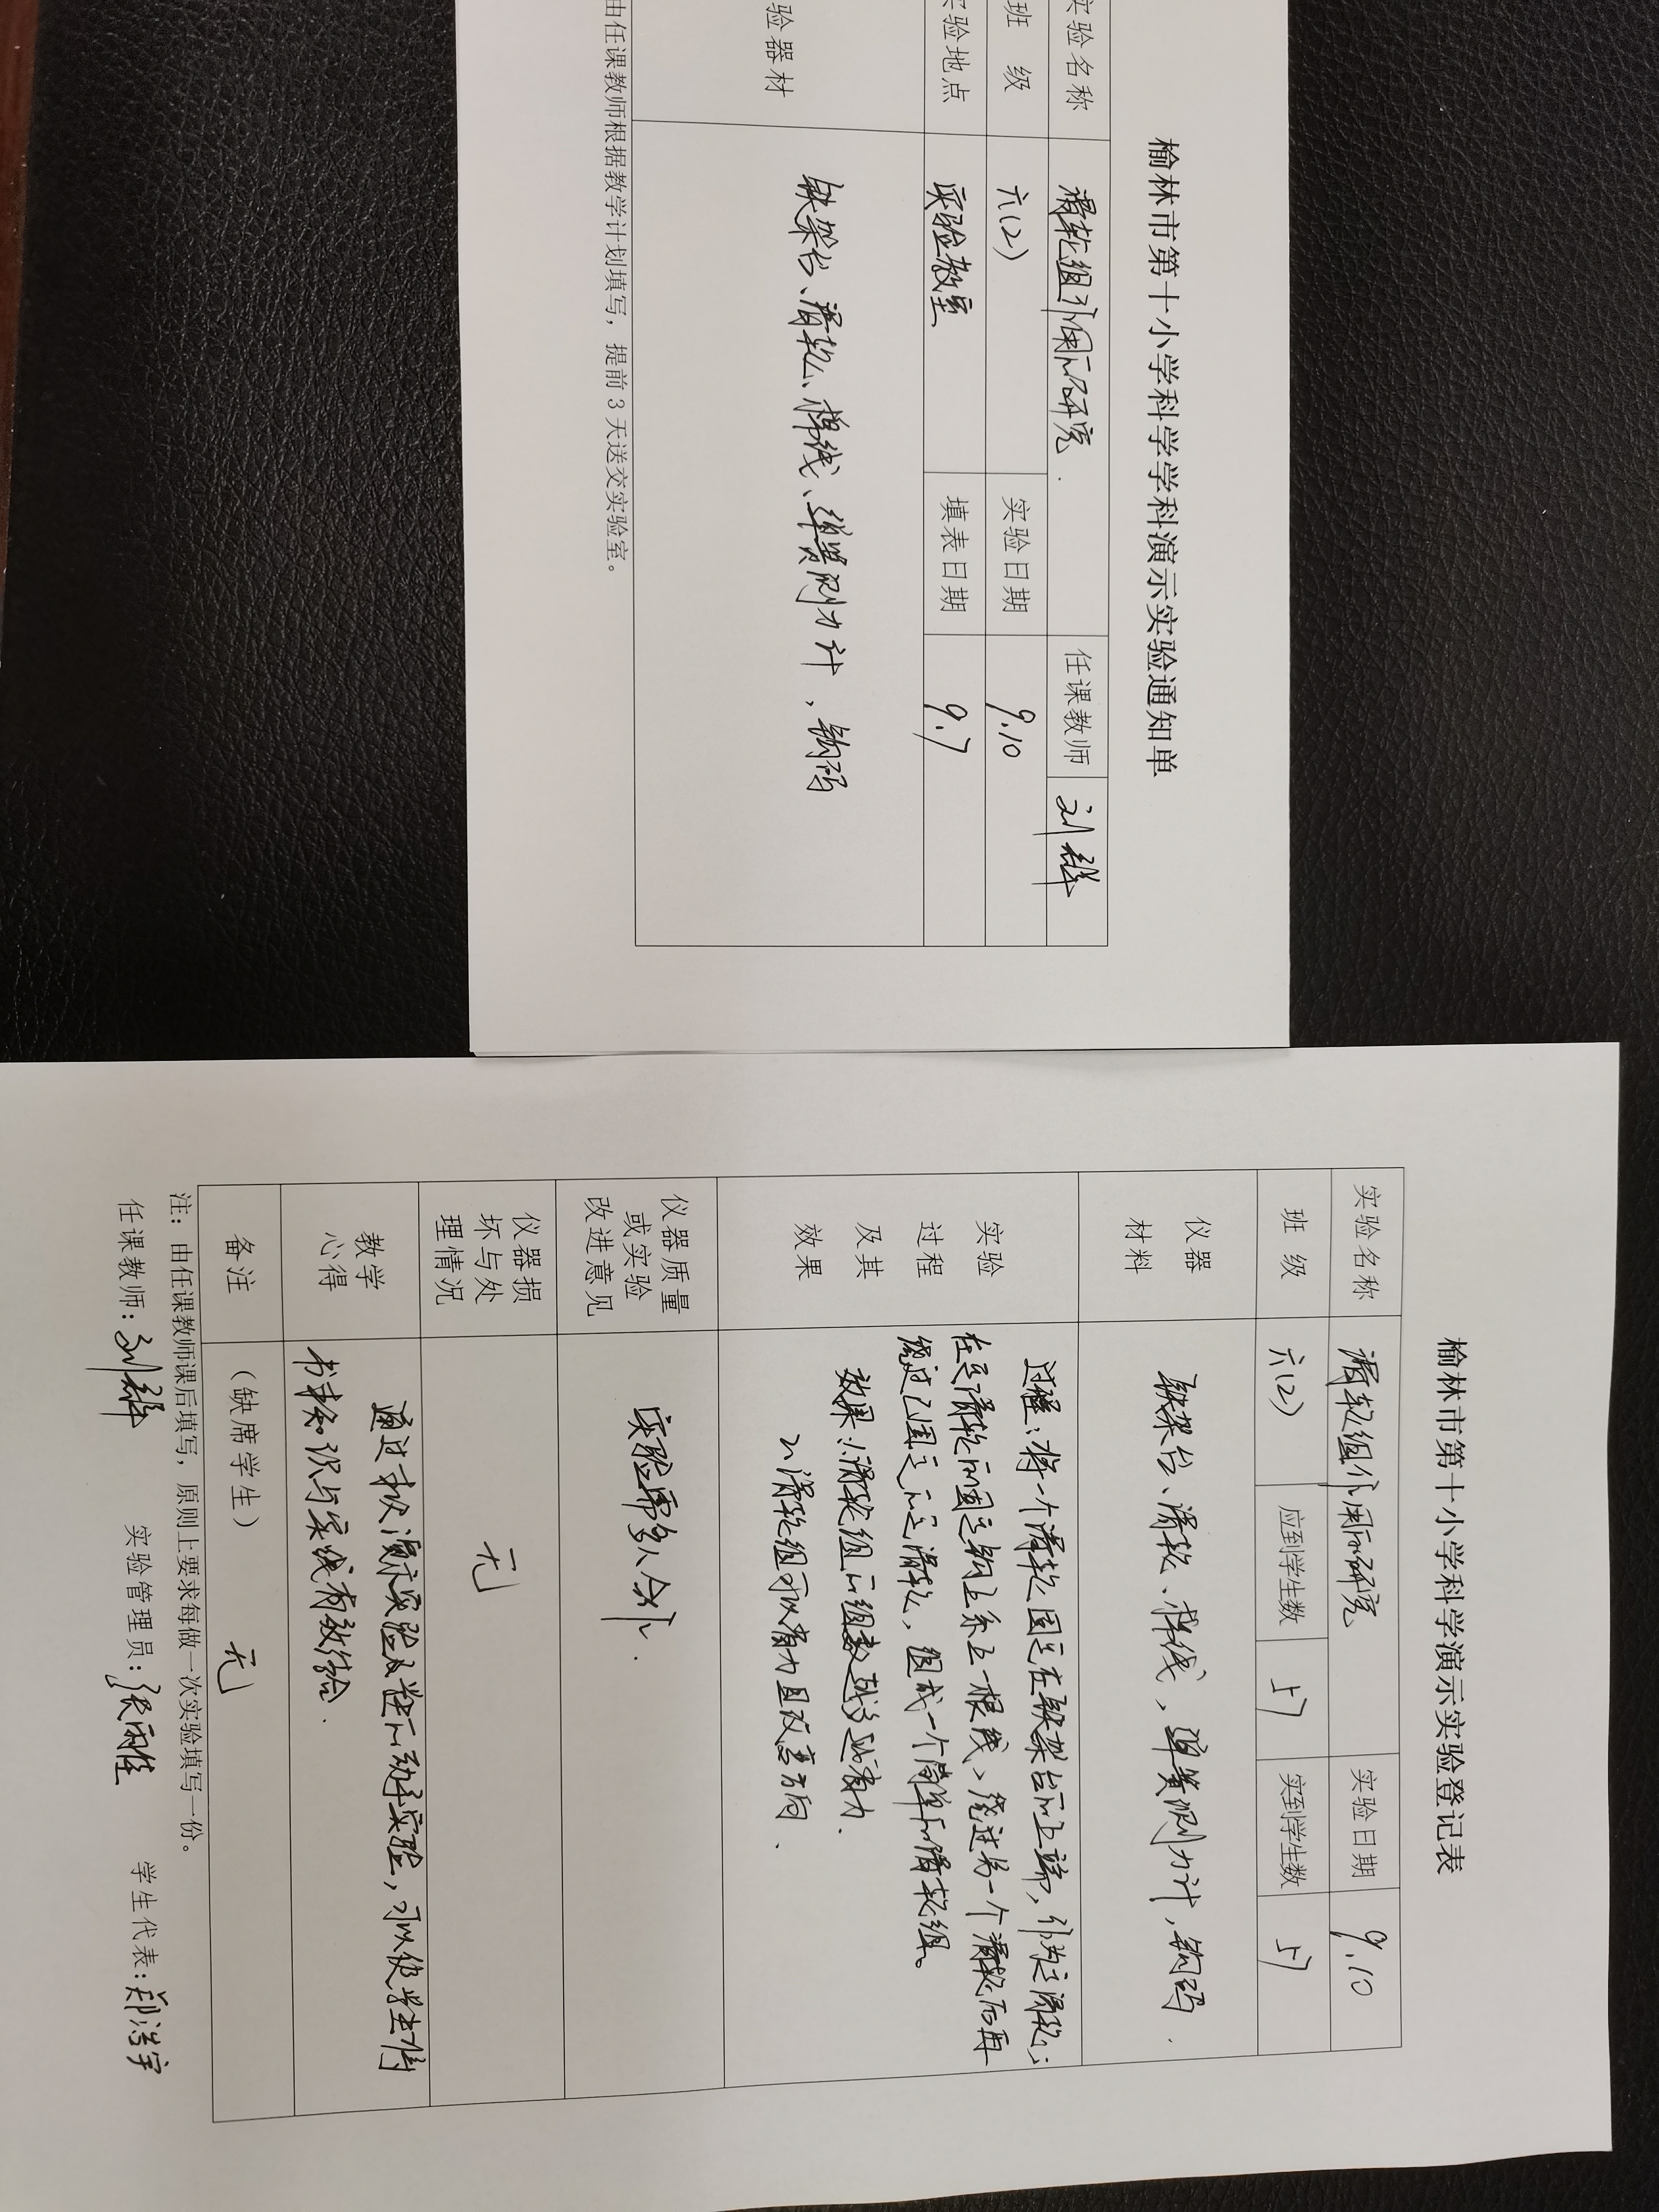 榆林市第十小学科学学科演示实验通知单
实验名称 滑轮组作用的研究 任课教师 刘
班 级 六(2) 实验日期 9.10
实验地点 实验教室 填表日期 9.7
验器材 铁架台、滑轮、棉线、弹簧测力计，钩码
由任课教师根据教学计划填写，提前3天送交实验室。
榆林市第十小学科学演示实验登记表
实验名称 滑轮组作用的研究 实验日期 9.10
班 级 六(2) 应到学生数 57 实到学生数 57
仪器
材料
铁架台、滑轮、棉线，弹簧测力计，钩码.
实验
过程
及其
效果
过程：将一个滑轮固定在铁架台的上端，作为定滑轮；
在定滑轮的固定钩上系上一根线，绕过另一个滑轮后再
绕过已固定的定滑轮，组成一个简单的滑轮组。
效果：1.滑轮组的组数越多越省力.
2.滑轮组可以省力且改变方向.
仪器质量
或实验
改进意见
实验需多人合作.
仪器损
坏与处
理情况
无
教学
心得
通过 演示实验及 的动手实验，可以使学生将
书本知识与实践有效结合.
备注
（缺席学生） 无
注：由任课教师课后填写，原则上要求每做一次实验填写一份。
任课教师：刘 实验管理员：张雨佳 学生代表：郑浩宇